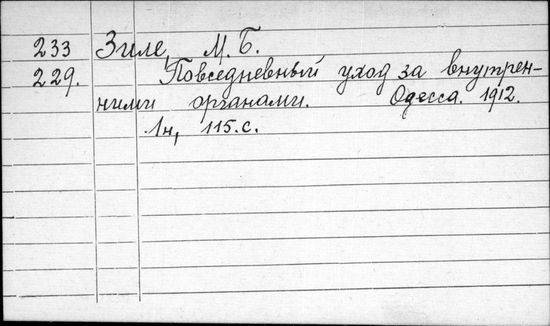 233 Зиле, М. Б.
229. Повседневный уход за внутрен-
ними органами. Одесса. 1912.
1н, 115.с.